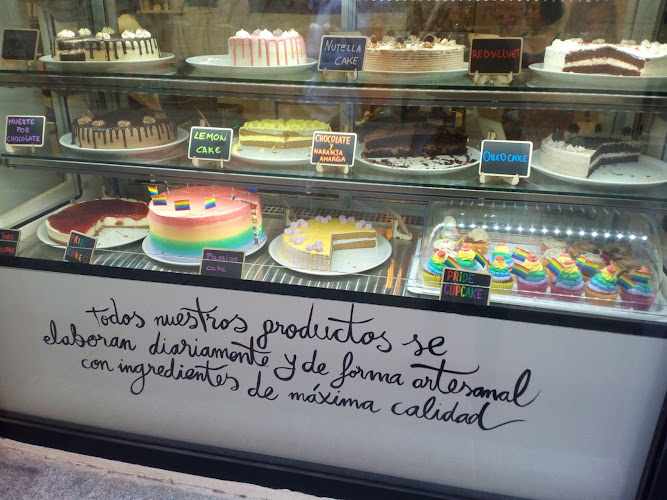 NUTELLA
CAKE
REDVELVET
MUERTE
POR
CHOCOLATE
LEMON
CAKE
CHOCOLATE
Y
NARANJA
AMARGA
OREO CAKE
PASSION
CAKE
PRIDE
CUPCAKE
Todos nuestros productos se
elaboran diariamente y de forma artesanal
con ingredientes de máxima calidad